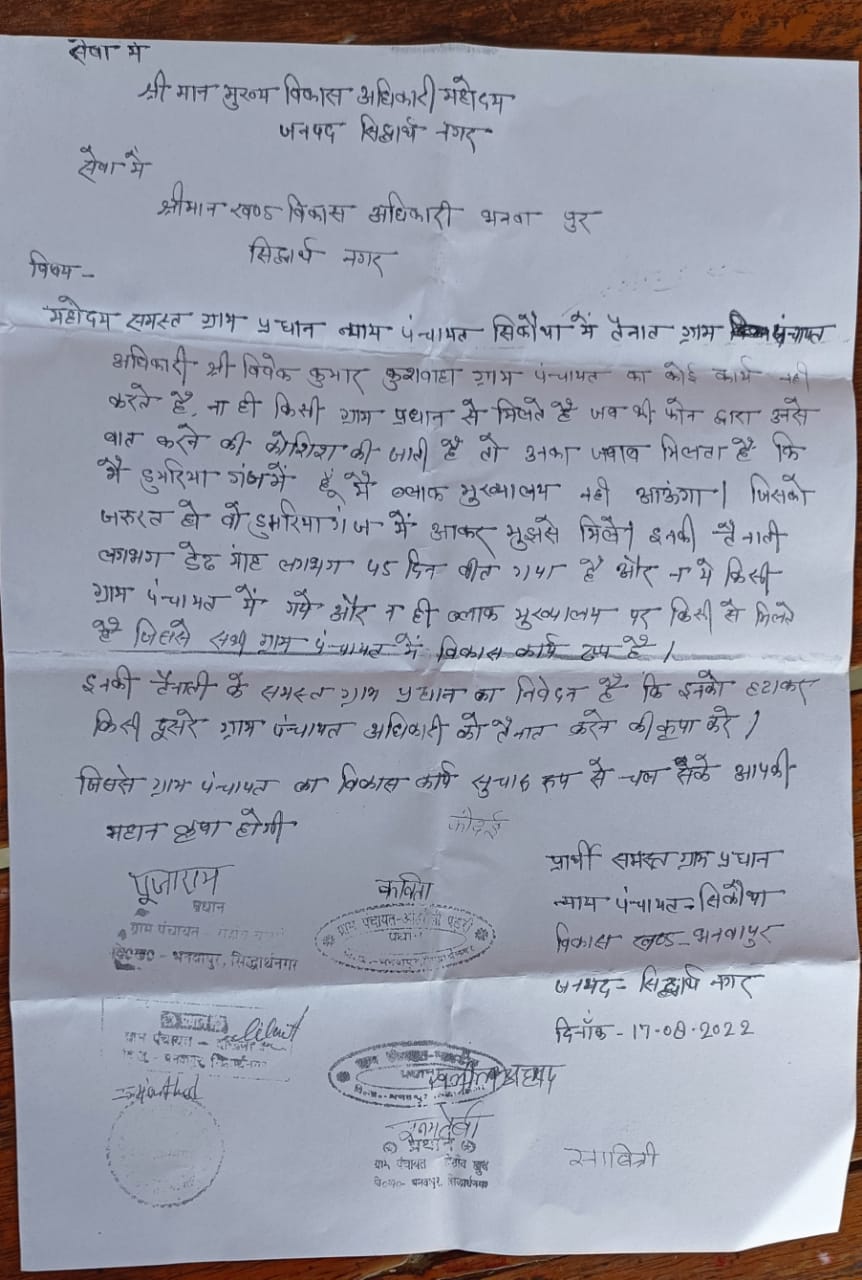 सेवा मे
श्री मान मुख्य विकास अधिकारी महोदय
जनपद सिद्धार्थ नगर
सेवा मे
श्रीमान खण्ड विकास अधिकारी भनवा पुर
सिद्धार्थ नगर
विषय -
महोदय समस्त ग्राम प्रधान न्याय पंचायत सिकौथा में तैनात ग्राम पंचायत
अधिकारी श्री विवेक कुमार कुशवाहा ग्राम पंचायत का कोई कार्य नही
करते है, ना ही किसी ग्राम प्रधान से मिलते है जब भी फोन द्वारा उनसे
बात करने की कोशिश की जाती है तो उनका जवाब मिलता है कि
मै डुमरिया गंज में हूँ मै ब्लाक मुख्यालय नही आऊंगा। जिसको
जरुरत हो वो डुमरिया गंज में आकर मुझसे मिले। इनकी तैनाती
लगभग डेढ माह लगभग 45 दिन बीत गया है और न ये किसी
ग्राम पंचायत में गये और न ही ब्लाक मुख्यालय पर किसी से मिलते
है जिससे सभी ग्राम पंचायत में विकास कार्य ठप है।
इनकी तैनाती के समस्त ग्राम प्रधान का निवेदन है कि इनको हटाकर
किसी दूसरे ग्राम पंचायत अधिकारी को तैनात करने की कृपा करे।
जिससे ग्राम पंचायत का विकास कार्य सुचारु रुप से चल सके आपकी
महान कृपा होगी
कोदई
प्रार्थी समस्त ग्राम प्रधान
न्याय पंचायत - सिकौथा
विकास खण्ड - भनवापुर
जनपद - सिद्धार्थ नगर
दिनाँक - 17-08-2022
पूजाराम
प्रधान
ग्राम पंचायत
वि०ख०- भनवापुर, सिद्धार्थनगर
कविता
ग्राम पंचायत
प्रधान
ग्राम पंचायत -
अहमद
प्रधान
ग्राम पंचायत
वि०ख०- भनवापुर, सिद्धार्थनगर
सावित्री